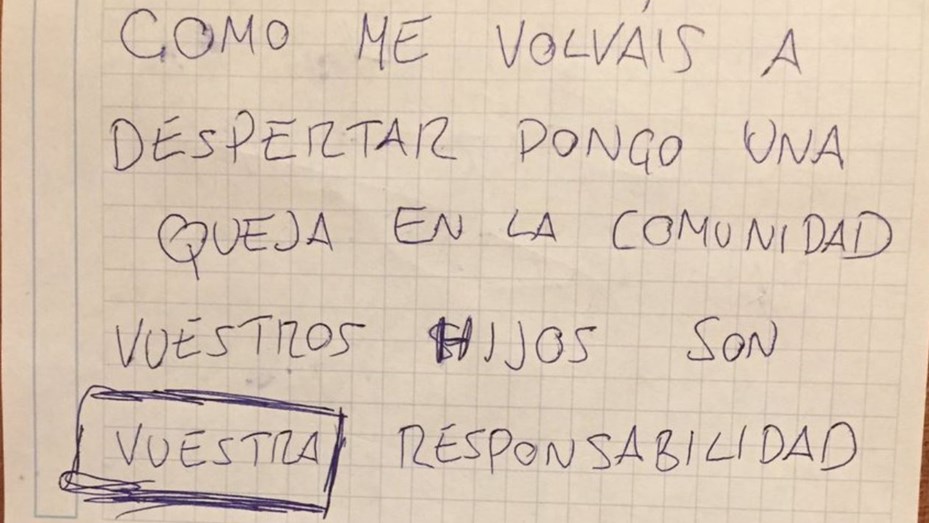 COMO ME VOLVÁIS A
DESPERTAR PONGO UNA
QUEJA EN LA COMUNIDAD
VUESTROS HIJOS SON
VUESTRA RESPONSABILIDAD